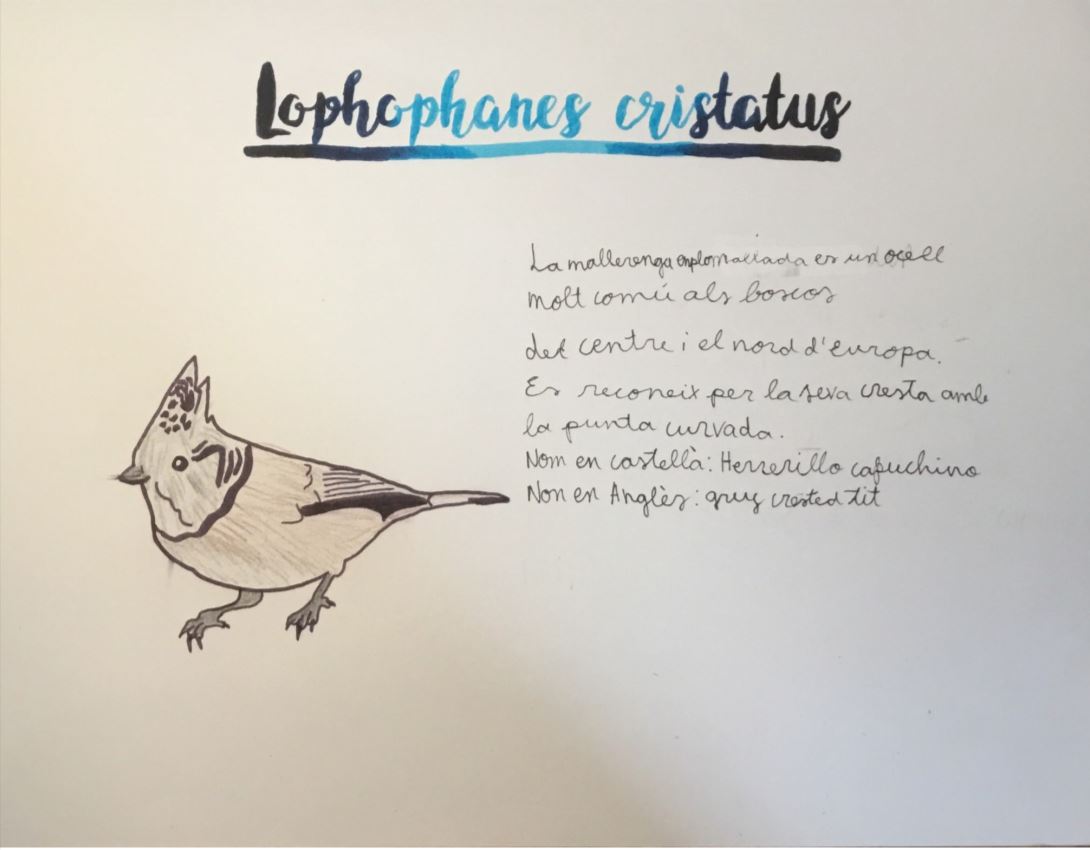 Lophophanes cristatus
La mallerenga emplomallada es un ocell
molt comú als boscos
del centre i el nord d'europa.
Es reconeix per la seva cresta amb
la punta curvada.
Nom en castellà: Herrerillo capuchino
Non en Anglès: crested tit